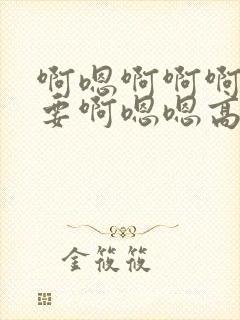 啊嗯啊啊啊
要啊嗯嗯高
金筱筱